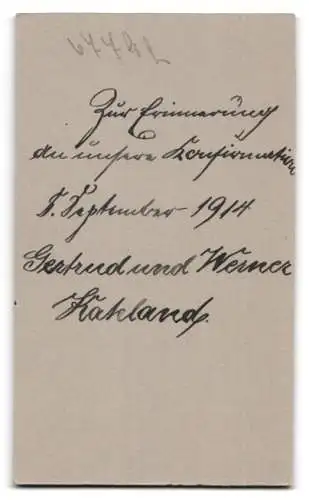 Zur Erinnerung
an unsere Konfirmation
September 1914
Gertrud und Werner
Kateland.